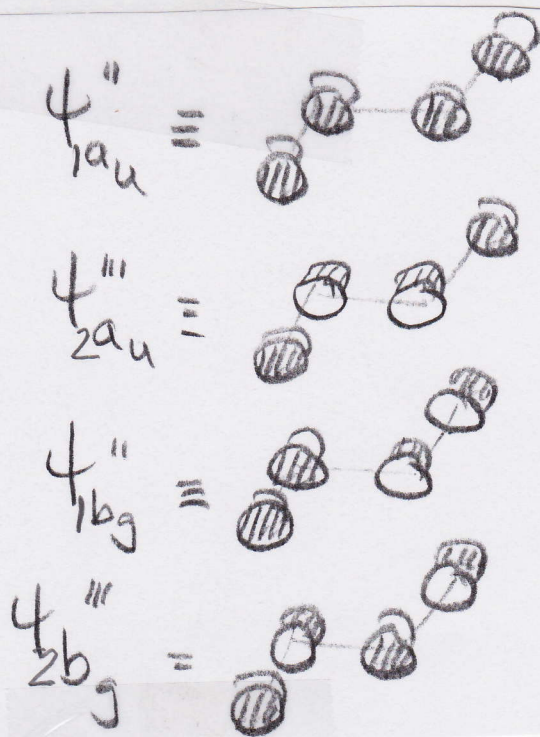 ψ₁ₐᵤ'' ≡
ψ₂ₐᵤ''' ≡
ψ₁b_g'' ≡
ψ₂b_g''' =